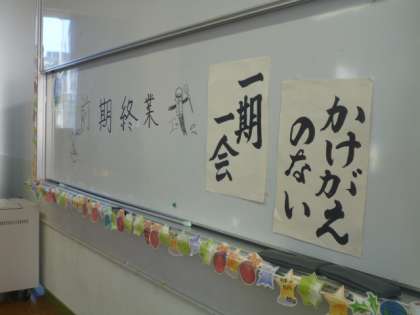 前期終業
一期
一会
かけがえ
のない